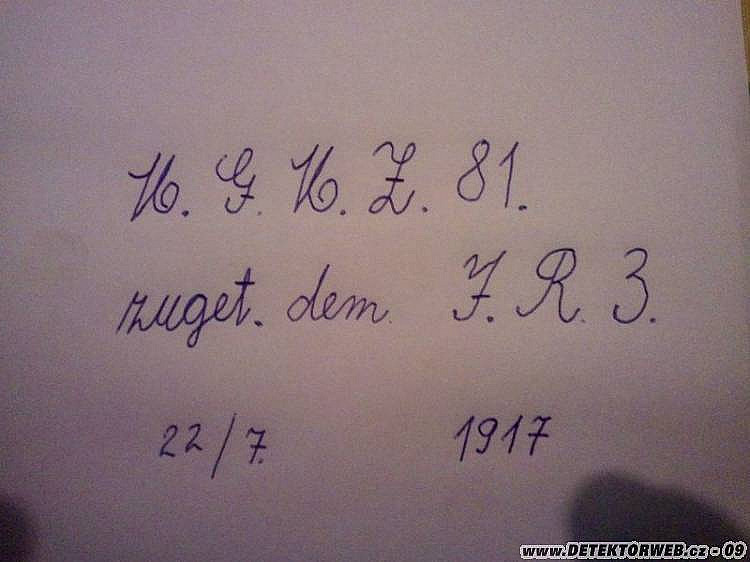 H. G. H. Z. 81.
zuget. dem. J. R. 3.
22/7. 1917
www.DETEKTORWEB.cz - 09